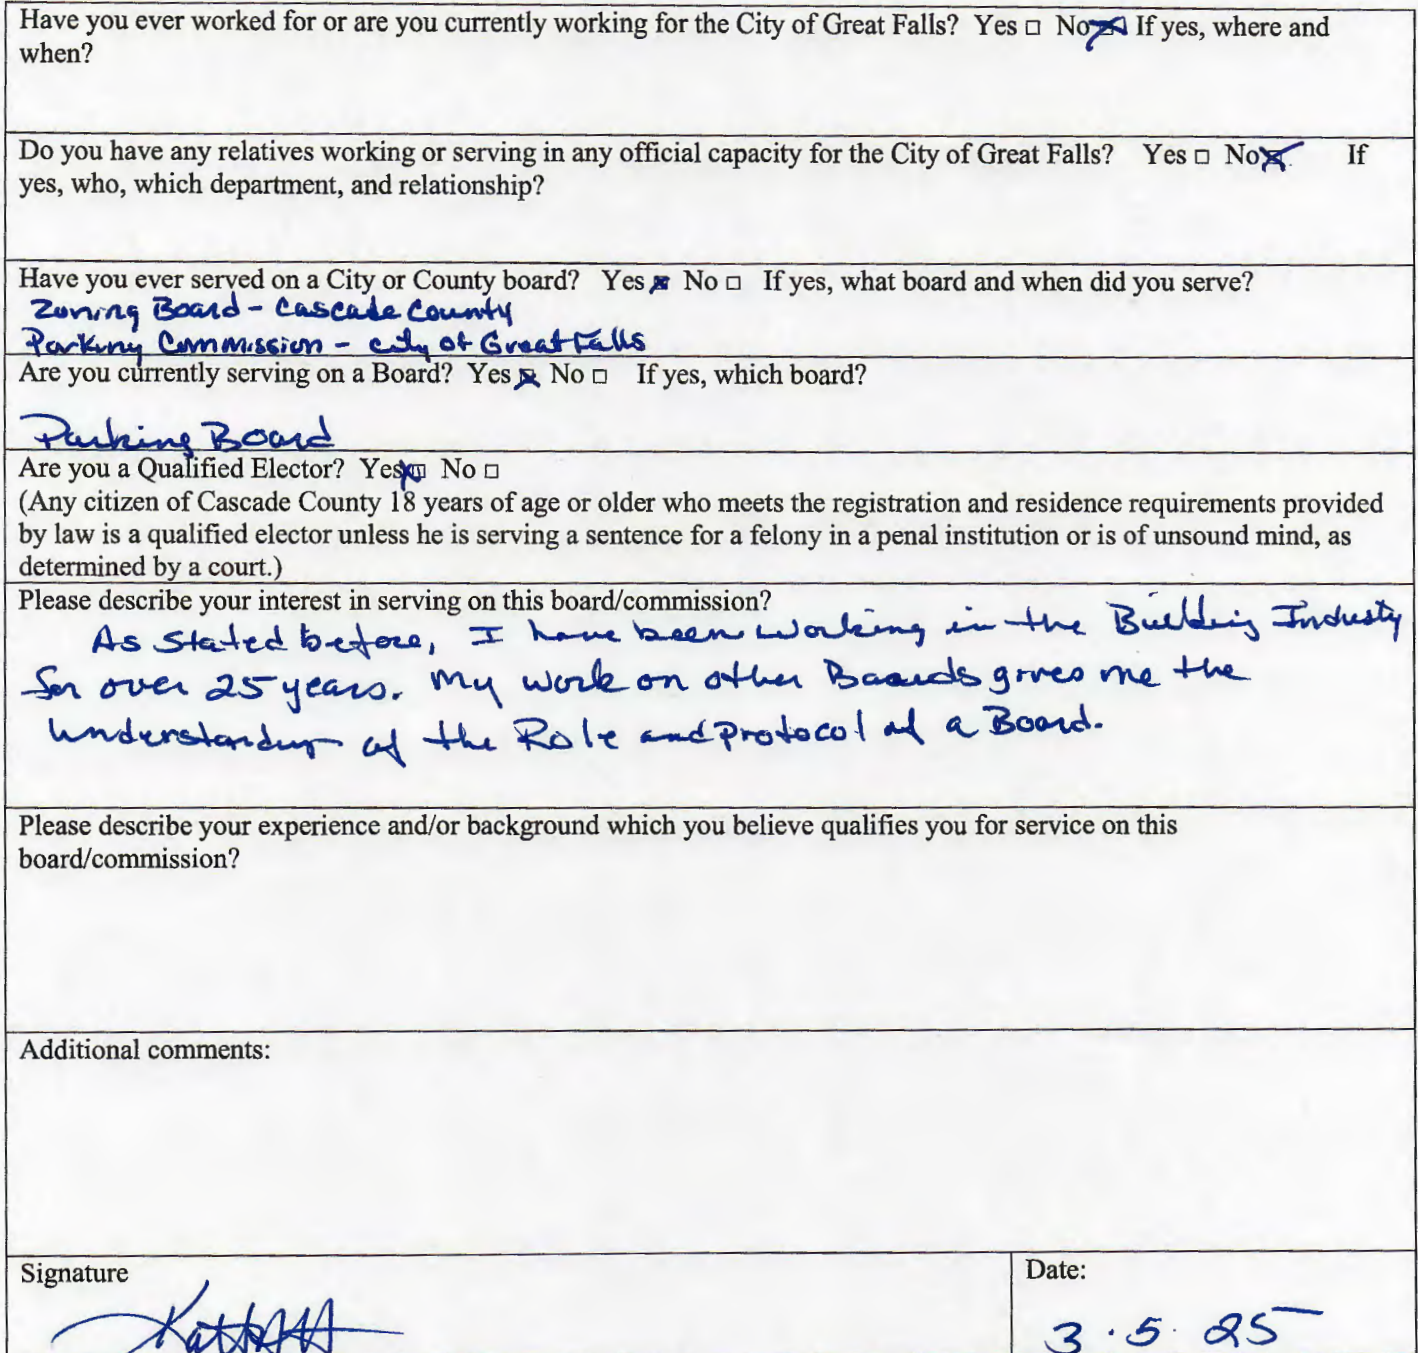 Have you ever worked for or are you currently working for the City of Great Falls? Yes □ No ☒ If yes, where and
when?
Do you have any relatives working or serving in any official capacity for the City of Great Falls? Yes □ No ☒ If
yes, who, which department, and relationship?
Have you ever served on a City or County board? Yes ☒ No □ If yes, what board and when did you serve?
Zoning Board - Cascade County
Parking Commission - City of Great Falls
Are you currently serving on a Board? Yes ☒ No □ If yes, which board?
Parking Board
Are you a Qualified Elector? Yes ☒ No □
(Any citizen of Cascade County 18 years of age or older who meets the registration and residence requirements provided
by law is a qualified elector unless he is serving a sentence for a felony in a penal institution or is of unsound mind, as
determined by a court.)
Please describe your interest in serving on this board/commission?
As Stated before, I have been working in the Building Industy
for over 25 years. My work on other Boards gives me the
Understanding of the Role and Protocol of a Board.
Please describe your experience and/or background which you believe qualifies you for service on this
board/commission?
Additional comments:
Signature
Date:
3.5.25